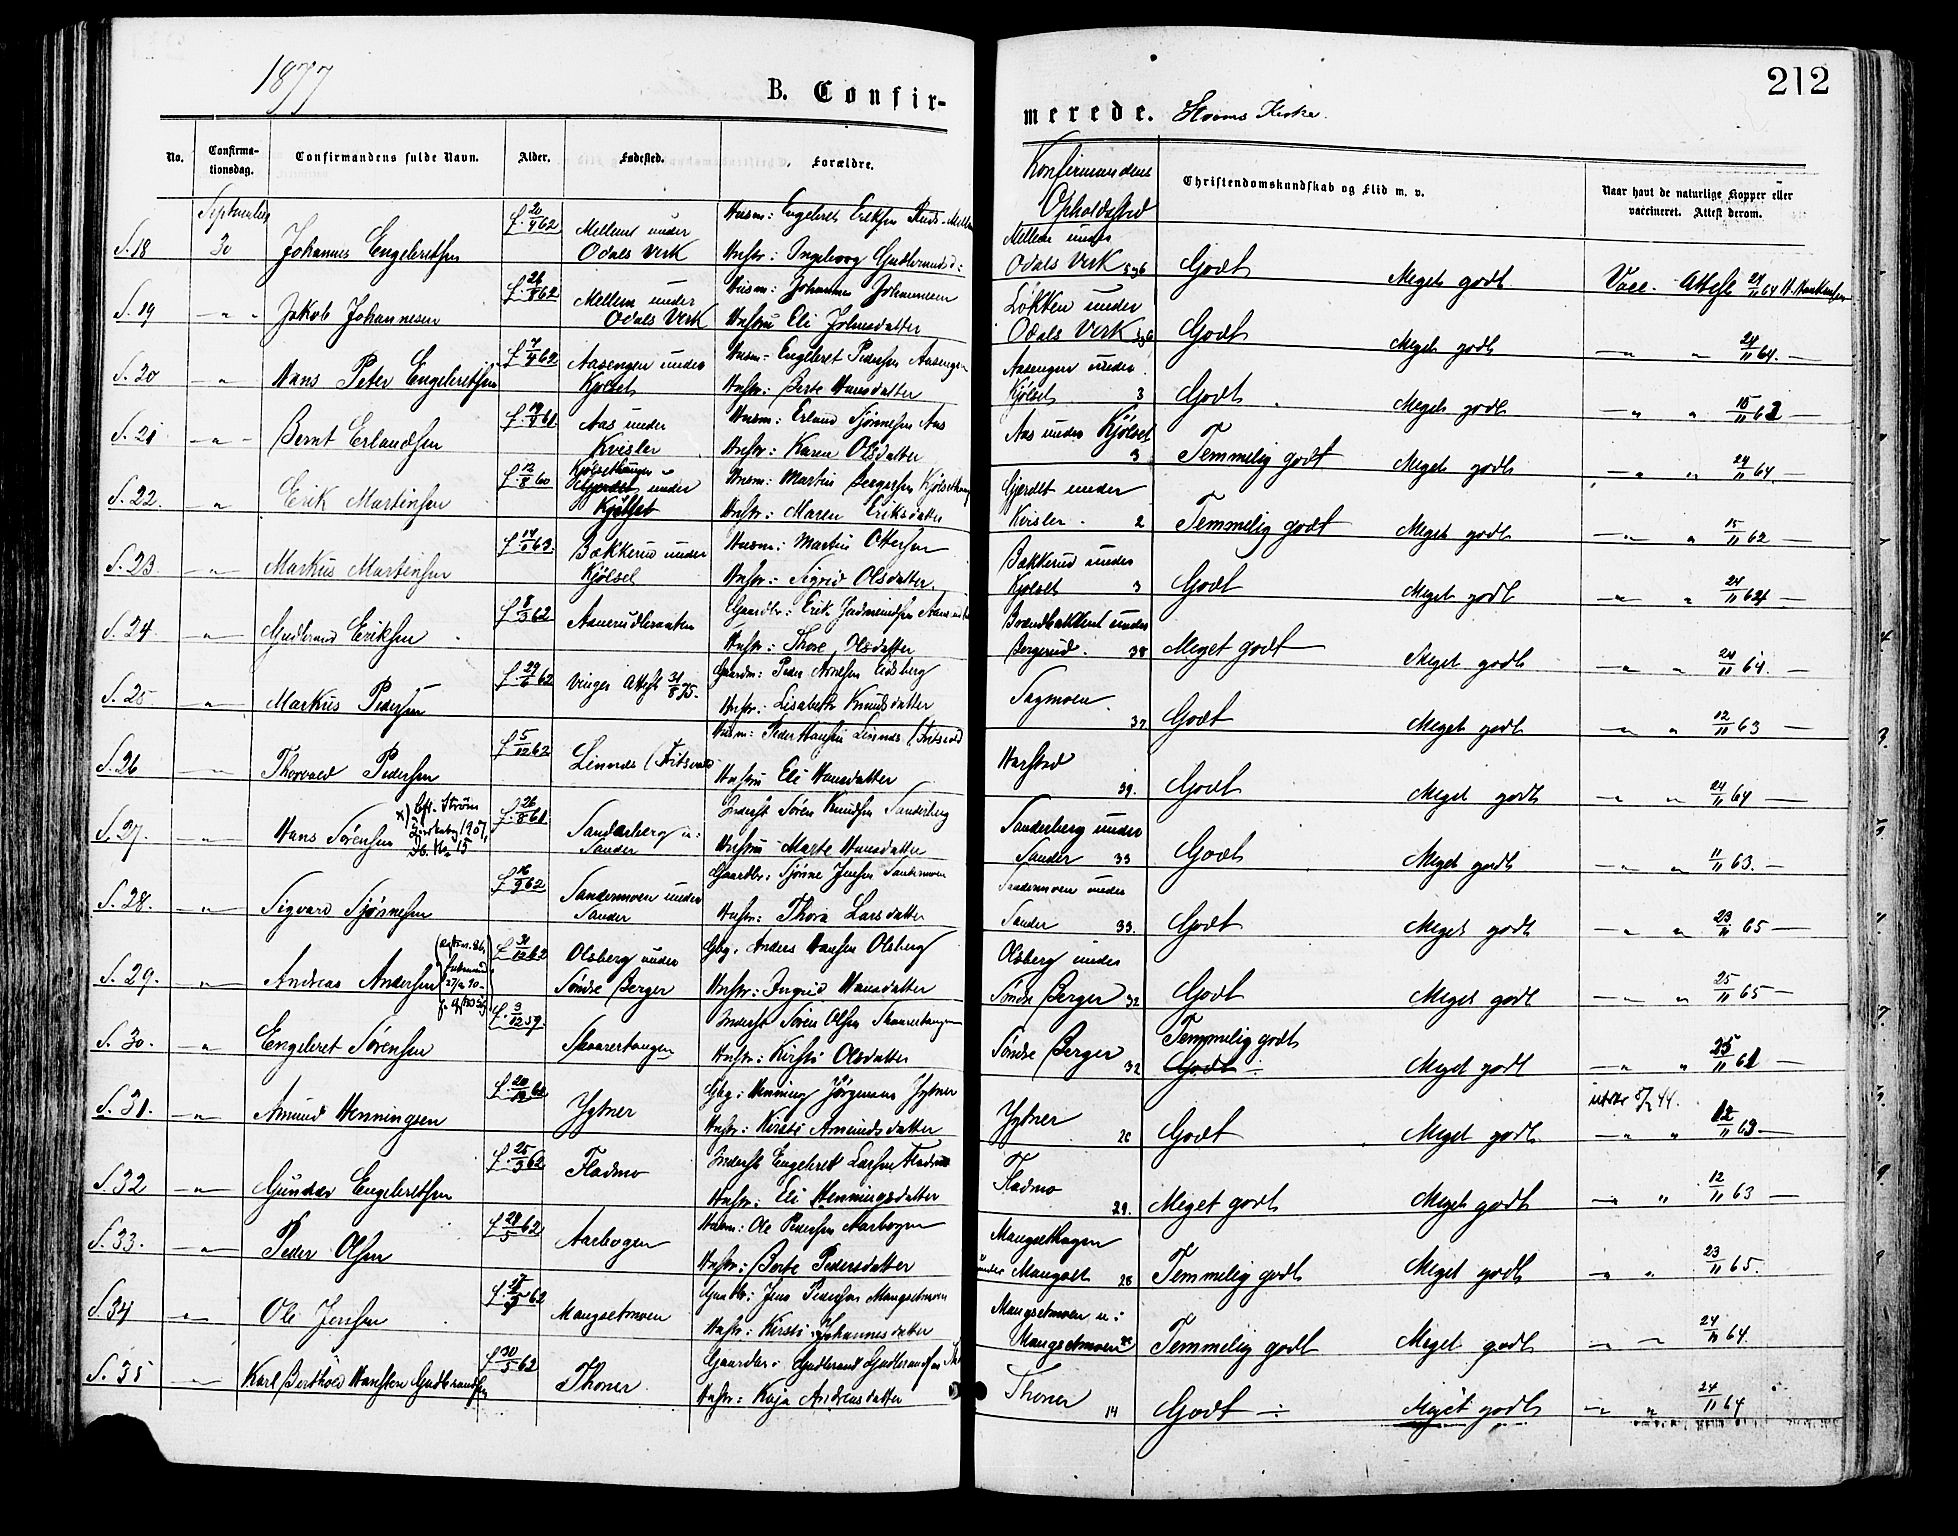 1877
B. Confir-
merede. Strøms Kirke.
212
No.
Confirma-
tionsdag.
Confirmandens fulde Navn.
Alder.
Fødested.
Forældre.
Konfirmandens
Opholdssted
Christendomskundskab og Flid m. v.
Naar havt de naturlige Kopper eller
vaccineret. Attest derom.
September
S. 18 30 Johannes Engebretsen f. 20/4 62 Mellem under Odals Verk
Husm: Engebret Eriksen
Hustr: Ingeborg Gudbrandsd:
Mellem under
Odals Verk 5 og 6 Godt Meget godt Vacc. Attest 24/11 64
S. 19 — " — Jakob Johannesen f. 26/8 62 Mellem under Odals Verk
Husm: Johannes Johannesen
Hustru Eli Johnsdatter
Løkken under
Odals Verk 5 og 6 Godt Meget godt — " " 24/11 64 —
S. 20 — " Hans Peter Engebretsen f. 7/4 62 Aasengen under Kjølset
Husm: Engebret Pedersen Aasengen
Hustr: Berte Hansdatter
Aasengen under
Kjølset 3 Godt Meget godt — " "
S. 21 — " — Bernt Erlandsen Aas under Kvisler
Husm: Erland Sjønnesen Aas
Hustr: Karen Olsdatter
Aas under Kjølset
3 Temmelig godt Meget godt — " " 24/11 64.
S. 22. " Erik Martinsen f. 12/8 60 under Kjølset
Husm: Martin Bergersen
Hustr: Maren Eriksdatter
Gjærdet under
Kvisler. 2 Temmelig godt Meget godt — " " 15/11 62 —
S. 23 — " — Markus Martinsen Bækkerud under Kjølset
Husm: Martin Ottersen
Hustr: Sigrid Olsdatter
Bækkerud under
Kjølset 3 Godt Meget godt — " " 24/11 64 —
S. 24. — " — Gudbrand Eriksen f. 8/3 62
Gaardbr: Erik
Hustr: Thore Olsdatter
under
Bergerud. 38 Meget godt Meget godt — " " 24/11 64. —
S. 25 — " — Markus Pedersen f. 29/6 62 Vinger Attest 31/8 75.
Gaardm: Peder Arnesen Eidsberg
Hustr: Lisabeth Knudsdatter
Sagmoen.
37 Godt Meget godt — " " 12/11 63 —
S. 26 — " — Thorvald Pedersen f. 5/12 62 Linnes
Husm: Peder Hansen Linnes
Hustru Eli Hansdatter
Harstad
39. Godt Meget godt — " " 24/11 64 —
S. 27. — " — Hans Sørensen f. 26/8 61 Sanderberg u: Sander
Inderst Søren Knudsen Sanderberg
Hustru Marte Hansdatter
Sanderberg under
Sander 33 Godt Meget godt — " " 11/11 63. —
S. 28. — " — Sigvard Sjønnesen f. 16/9 62 Sandermoen under Sander
Gaardbr: Sjønne Jensen Sandermoen
Hustr: Thora Larsdatter
Sandermoen under
Sander 33. Godt Meget godt — " " 23/11 65 —
S. 29. — " Andreas Andersen f. 31/12 62 Olsberg under Søndre Berger
Gbg. Anders Hansen Olsberg
Hustr: Ingrid Hansdatter
Olsberg under
Søndre Berger 32 Godt Meget godt — " " 25/11 65 —
S. 30. — " Engebret Sørensen f. 3/12 59. Skaarertangen
Inderst Søren Olsen Skaarertangen
Hustr: Kirsti Olsdatter
Søndre Berger
32 Temmelig godt
Godt Meget godt — " "
S. 31. — " Amund Henningsen Hytner
Gbg: Henning Jørgensen Hytner
Hustr: Kirsti Amundsdatter
Hytner
26 Godt Meget godt — " " 12/11 63 —
S. 32 — " — Gunder Engebretsen f. 25/3 62 Fladmo
Inderst Engebret Larsen Fladmo
Hustr: Eli Henningsdatter
Fladmo
29. Meget godt Meget godt — " " 12/11 63 —
S. 33. — " — Peder Olsen f. 28/5 62 Aarbogen
Husm: Ole Pedersen Aarbogen
Hustr: Berte Pedersdatter
Mangsethagen
under Mangset 28 Temmelig godt Meget godt — " " 23/11 65.
S. 34 " Ole Jensen Mangsetmoen
Gaardbr: Jens Pedersen Mangsetmoen
Hustr: Kirsti Johannesdatter
Mangsetmoen u:
Temmelig godt Meget godt — " — 24/11 64.
S. 35 — " Karl Berthold Hansteen Gudbrandsen f. 30/5 62 Thoner
Gaardbr: Gudbrand Gudbrandsen
Hustr: Kaja Andreasdatter
Thoner
14 Godt Meget godt — " " 24/11 64